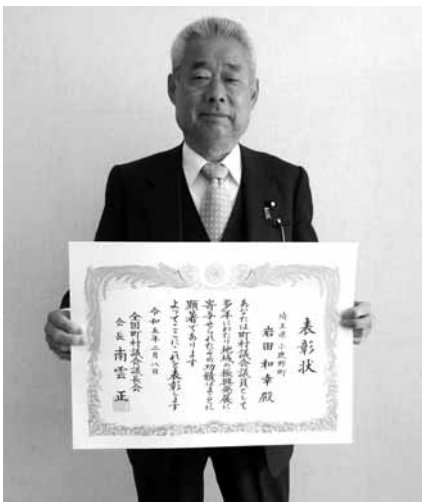 表彰状
埼玉県 小鹿野町
岩田和幸殿
あなたは町村議会議員として
多年にわたり地域の振興発展に
寄与せられたその功績はまことに
顕著であります
よってここにこれを表彰します
令和五年二月八日
全国町村議会議長会
会長 南雲 正